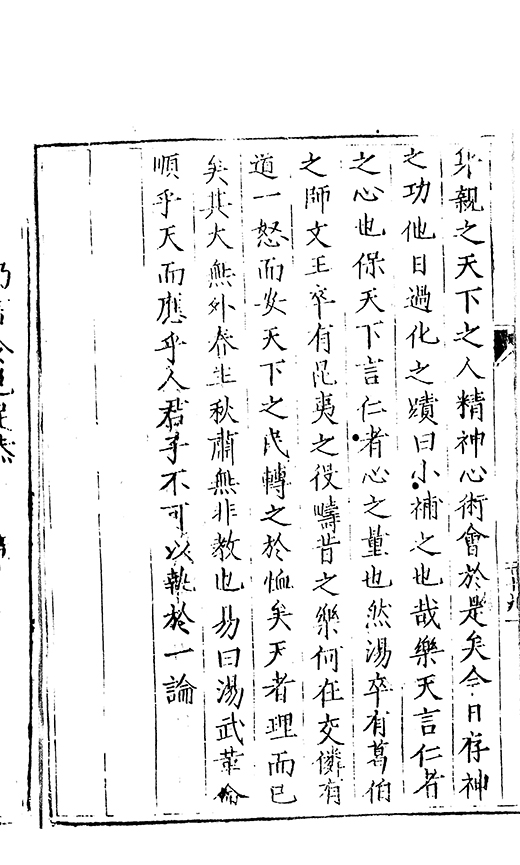 親之天下之人精神心術會於是矣今日存神
之功他日過化之蹟曰小補之也哉樂天言仁者
之心也保天下言仁者心之量也然湯卒有葛伯
之師文王卒有昆夷之役疇昔之樂何在交隣有
道一怒而安天下之民轉之於恤矣天者理而已
矣其大無外春生秋肅無非教也易曰湯武革命
順乎天而應乎人君子不可以執於一論